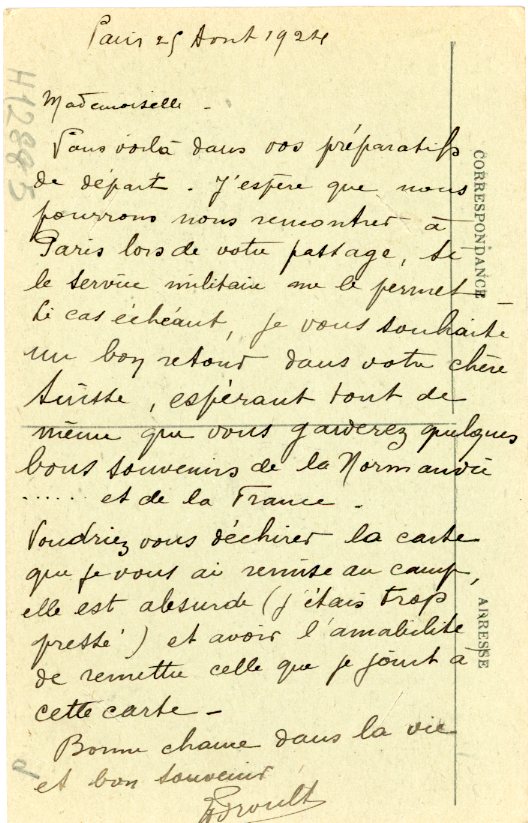 Paris 25 Aout 1924
Mademoiselle -
Vous voilà dans vos préparatifs
de départ. J'espère que nous
pourrons nous remontrer à
Paris lors de votre passage, si
le service militaire me le permet -
Le cas échéant, je vous souhaite
un bon retour dans votre chère
Suisse, espérant tout de
même que vous garderez quelques
bons souvenirs de la Normandie
..... et de la France.
Voudriez vous déchirer la carte
que je vous ai remise au camp,
elle est absurde (j'étais trop
pressé) et avoir l'amabilité
de remettre celle que je joint à
cette carte -
Bonne chance dans la vie
et bon souvenir
CORRESPONDANCE
ADRESSE
H12885